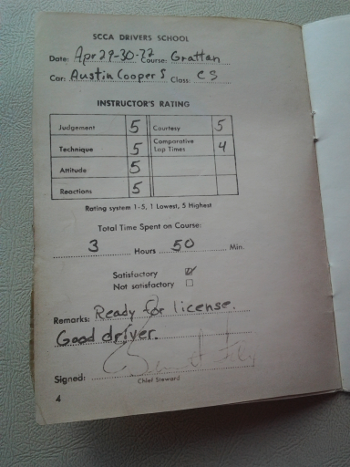 SCCA DRIVERS SCHOOL
Date: Apr 29-30-72 Course: Grattan
Car: Austin Cooper S Class: CS
INSTRUCTOR'S RATING
Judgement 5 Courtesy 5
Technique 5 Comparative Lap Times 4
Attitude 5
Reactions 5
Rating system 1-5, 1 Lowest, 5 Highest
Total Time Spent on Course:
3 Hours 50 Min.
Satisfactory ☑
Not satisfactory ☐
Remarks: Ready for license.
Good driver.
Signed:
Chief Steward
4